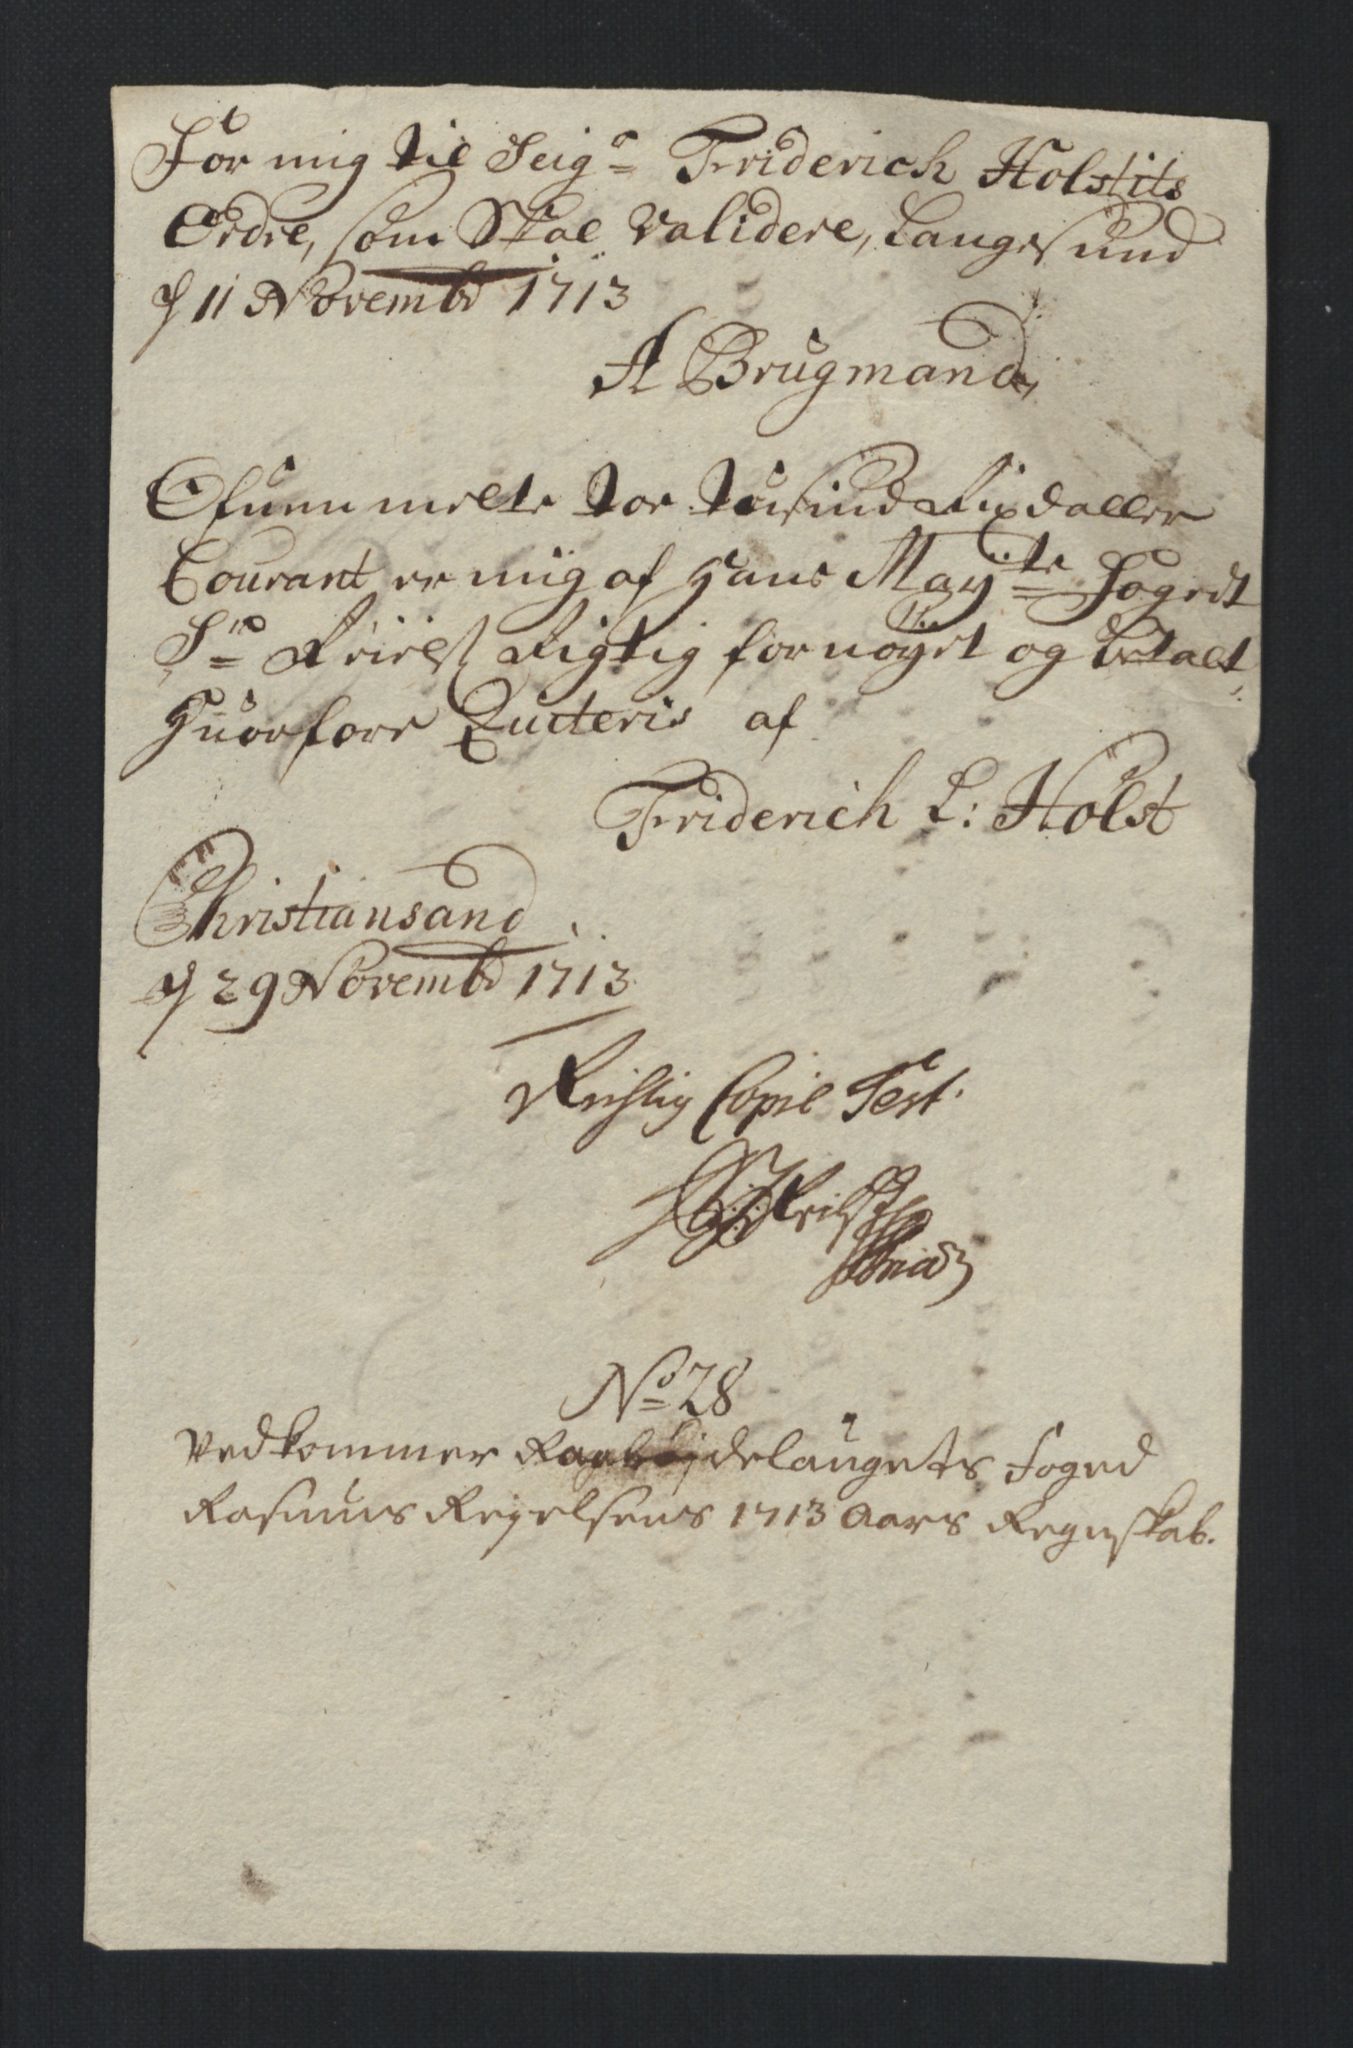 For mig til Seigr Friderich Holst its
Ordre, som Skal Validere, Langesund
d 11 Novembr 1713
A Brugmand
Ofuenmelte toe tusind Rixdaller
Courant er mig af Hans Mayts Fogedt
Sr Reiels Rigtig fornöyet og betalt,
Huorfore Quiteris af
Friderich L: Holst
Christiansand
d 29 Novembr 1713
Richtig Copie Test.
No 28
Vedkommer Raabÿgdelaugets foged
Rasmus Regelsens 1713 Aars Regnskab.